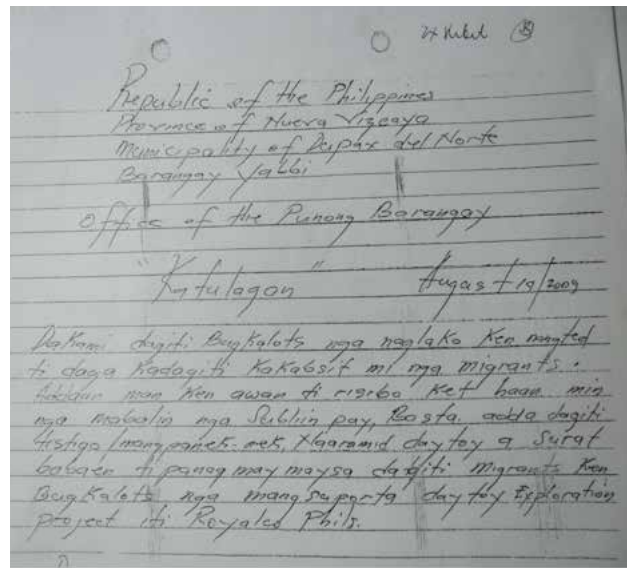 8
Republic of the Philippines
Province of Nueva Vizcaya
Municipality of Dupax del Norte
Barangay Yabbi
Office of the Punong Barangay
"Katulagan" August 19/2009
Dakami dagiti Bugkalots nga naglako Ken mangted
ti daga Kadagiti Kakabsit mi nga migrants.
Addaan man Ken awan ti risibo Ket haan min
nga mabalin nga Subliin pay, Basta adda dagiti
tistigo/mangpanek-nek, Naaramid daytoy a Surat
babaen ti panagmaymaysa dagiti migrants Ken
Bugkalots nga mangsuporta daytoy Exploration
project iti Royalco Phils.